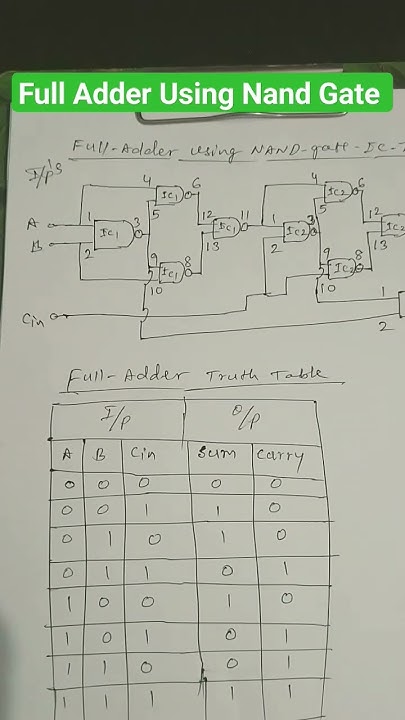 Full Adder Using Nand Gate
Full-Adder using NAND-gate-IC-
I/p's
4 6 4 6
IC1 IC2
5 5
A 1 3 12 11 1 3 12
IC1 IC1 IC2 IC2
B 2 13 2 13
9 8 9 8
IC1 IC2
10 10
Cin 1
2
Full-Adder Truth Table
I/p O/p
A B Cin Sum Carry
0 0 0 0 0
0 0 1 1 0
0 1 0 1 0
0 1 1 0 1
1 0 0 1 0
1 0 1 0 1
1 1 0 0 1
1 1 1 1 1